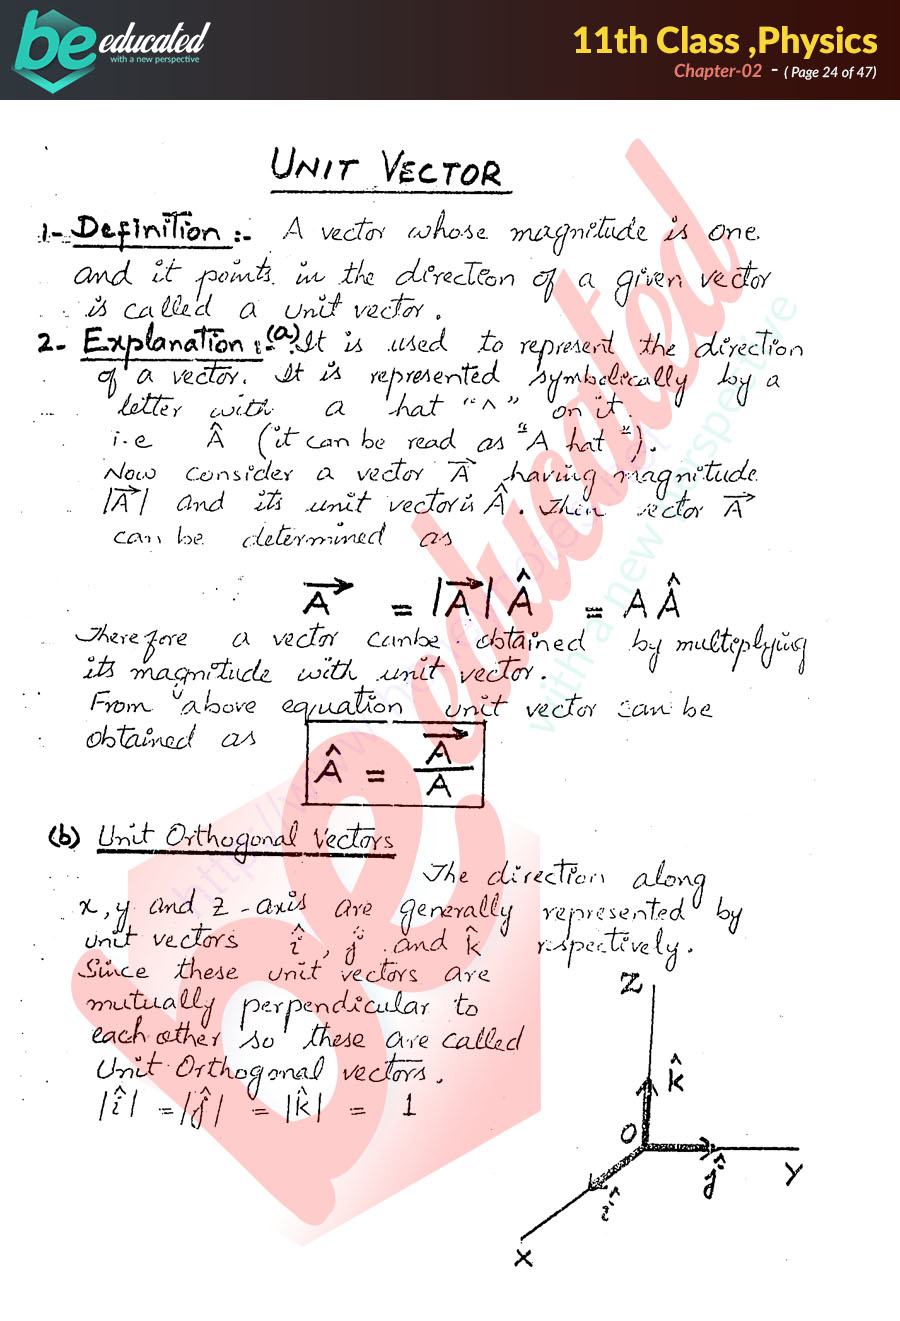 be educated
with a new perspective
11th Class ,Physics
Chapter-02 - ( Page 24 of 47)
UNIT VECTOR
1- Definition :- A vector whose magnitude is one
and it points in the direction of a given vector
is called a unit vector.
2- Explanation :- (a) It is used to represent the direction
of a vector. It is represented symbolically by a
letter with a hat "^" on it.
i.e Â (it can be read as "A hat").
Now consider a vector A⃗ having magnitude
|A⃗| and its unit vector is Â. Then vector A⃗
can be determined as
A⃗ = |A⃗| Â = A Â
Therefore a vector canbe obtained by multiplying
its magnitude with unit vector.
From above equation unit vector can be
obtained as
Â = A⃗ / A
(b) Unit Orthogonal Vectors
The direction along
x, y and z-axis are generally represented by
unit vectors î, ĵ and k̂ respectively.
Since these unit vectors are
mutually perpendicular to
each other so these are called
Unit Orthogonal vectors.
|î| = |ĵ| = |k̂| = 1
Z
k̂
O
ĵ
Y
î
X
be educated
with a new perspective